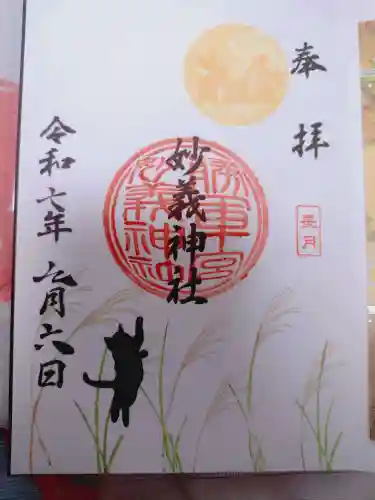 奉拝
長月
妙義神社
令和七年 六月六日